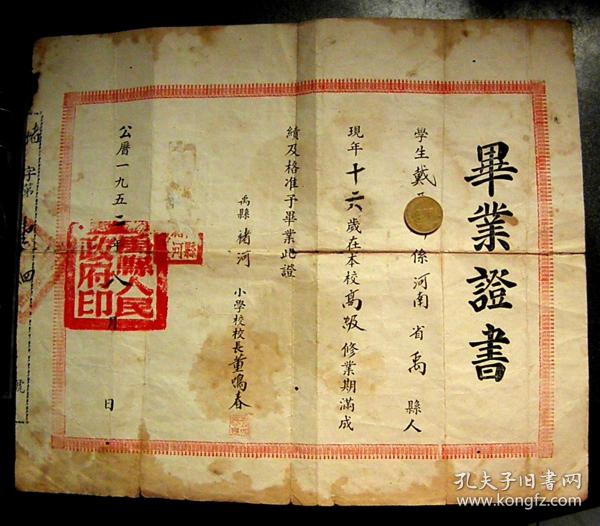 畢業證書
學生戴 係河南省禹縣人
現年十六歲在本校高級修業期滿成
績及格准予畢業此證
禹縣褚河小學校校長董鳴春
公曆一九五二年八月 日
禹縣人民政府印
字第 號
孔夫子旧书网
www.kongfz.com